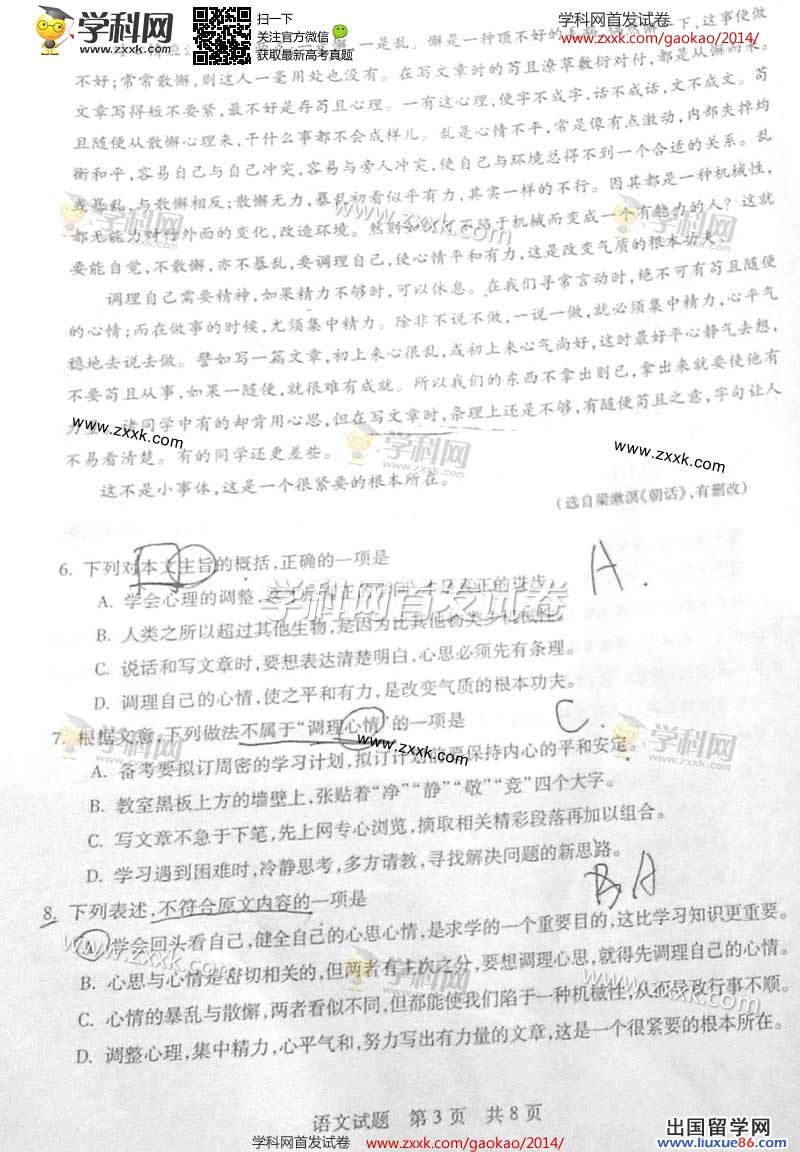 学科网
www.zxxk.com
扫一下
关注官方微信
获取最新高考真题
学科网首发试卷
www.zxxk.com/gaokao/2014/
一是懈,一是乱。懈是一种顶不好的
下,这事便做
不好;常常散懈,则这人一毫用处也没有。在写文章时的苟且潦草敷衍对付,都是从懈而来。
文章写得短不要紧,最不好是存苟且心理。一有这心理,便字不成字,话不成话,文不成文。苟
且随便从散懈心理来,干什么事都不会成样儿。乱是心情不平,常是像有点激动,内部失掉均
衡和平,容易自己与自己冲突,容易与旁人冲突,使自己与环境总得不到一个合适的关系。乱
或暴乱,与散懈相反;散懈无力,暴乱初看似乎有力,其实一样的不行。因其都是一种机械性,
都无能力对付外面的变化,改造环境。然则如何可不陷于机械而变成一个有能力的人?这就
要能自觉,不散懈,亦不暴乱,要调理自己,使心情平和有力,这是改变气质的根本功夫。
调理自己需要精神,如果精力不够时,可以休息。在我们寻常言动时,绝不可有苟且随便
的心情;而在做事的时候,尤须集中精力。除非不说不做,一说一做,就必须集中精力,心平气
稳地去说去做。譬如写一篇文章,初上来心很乱,或初上来心气尚好,这时最好平心静气去想,
不要苟且从事,如果一随便,就很难有成就。所以我们的东西不拿出则已,拿出来就要使他有
力量。诸同学中有的却肯用心思,但在写文章时,条理上还是不够,有随便苟且之意,字句让人
不易看清楚。有的同学还更差些。
这不是小事体,这是一个很紧要的根本所在。
(选自梁漱溟《朝话》,有删改)
6. 下列对本文主旨的概括,正确的一项是
A.
A. 学会心理的调整,是才
正的进步
B. 人类之所以超过其他生物,是因为比其他物类少机械性。
C. 说话和写文章时,要想表达清楚明白,心思必须先有条理。
D. 调理自己的心情,使之平和有力,是改变气质的根本功夫。
7. 根据文章,下列做法不属于“调理心情”的一项是
C.
A. 备考要拟订周密的学习计划,拟订计划前要保持内心的平和安定。
B. 教室黑板上方的墙壁上,张贴着“净”“静”“敬”“竞”四个大字。
C. 写文章不急于下笔,先上网专心浏览,摘取相关精彩段落再加以组合。
D. 学习遇到困难时,冷静思考,多方请教,寻找解决问题的新思路。
BA
8. 下列表述,不符合原文内容的一项是
A. 学会回头看自己,健全自己的心思心情,是求学的一个重要目的,这比学习知识更重要。
B. 心思与心情是密切相关的,但两者有主次之分,要想调理心思,就得先调理自己的心情。
C. 心情的暴乱与散懈,两者看似不同,但都能使我们陷于一种机械性,从而导致行事不顺。
D. 调整心理,集中精力,心平气和,努力写出有力量的文章,这是一个很紧要的根本所在。
语文试题 第3页 共8页
学科网首发试卷
www.zxxk.com/gaokao/2014/
出国留学网
liuxue86.com